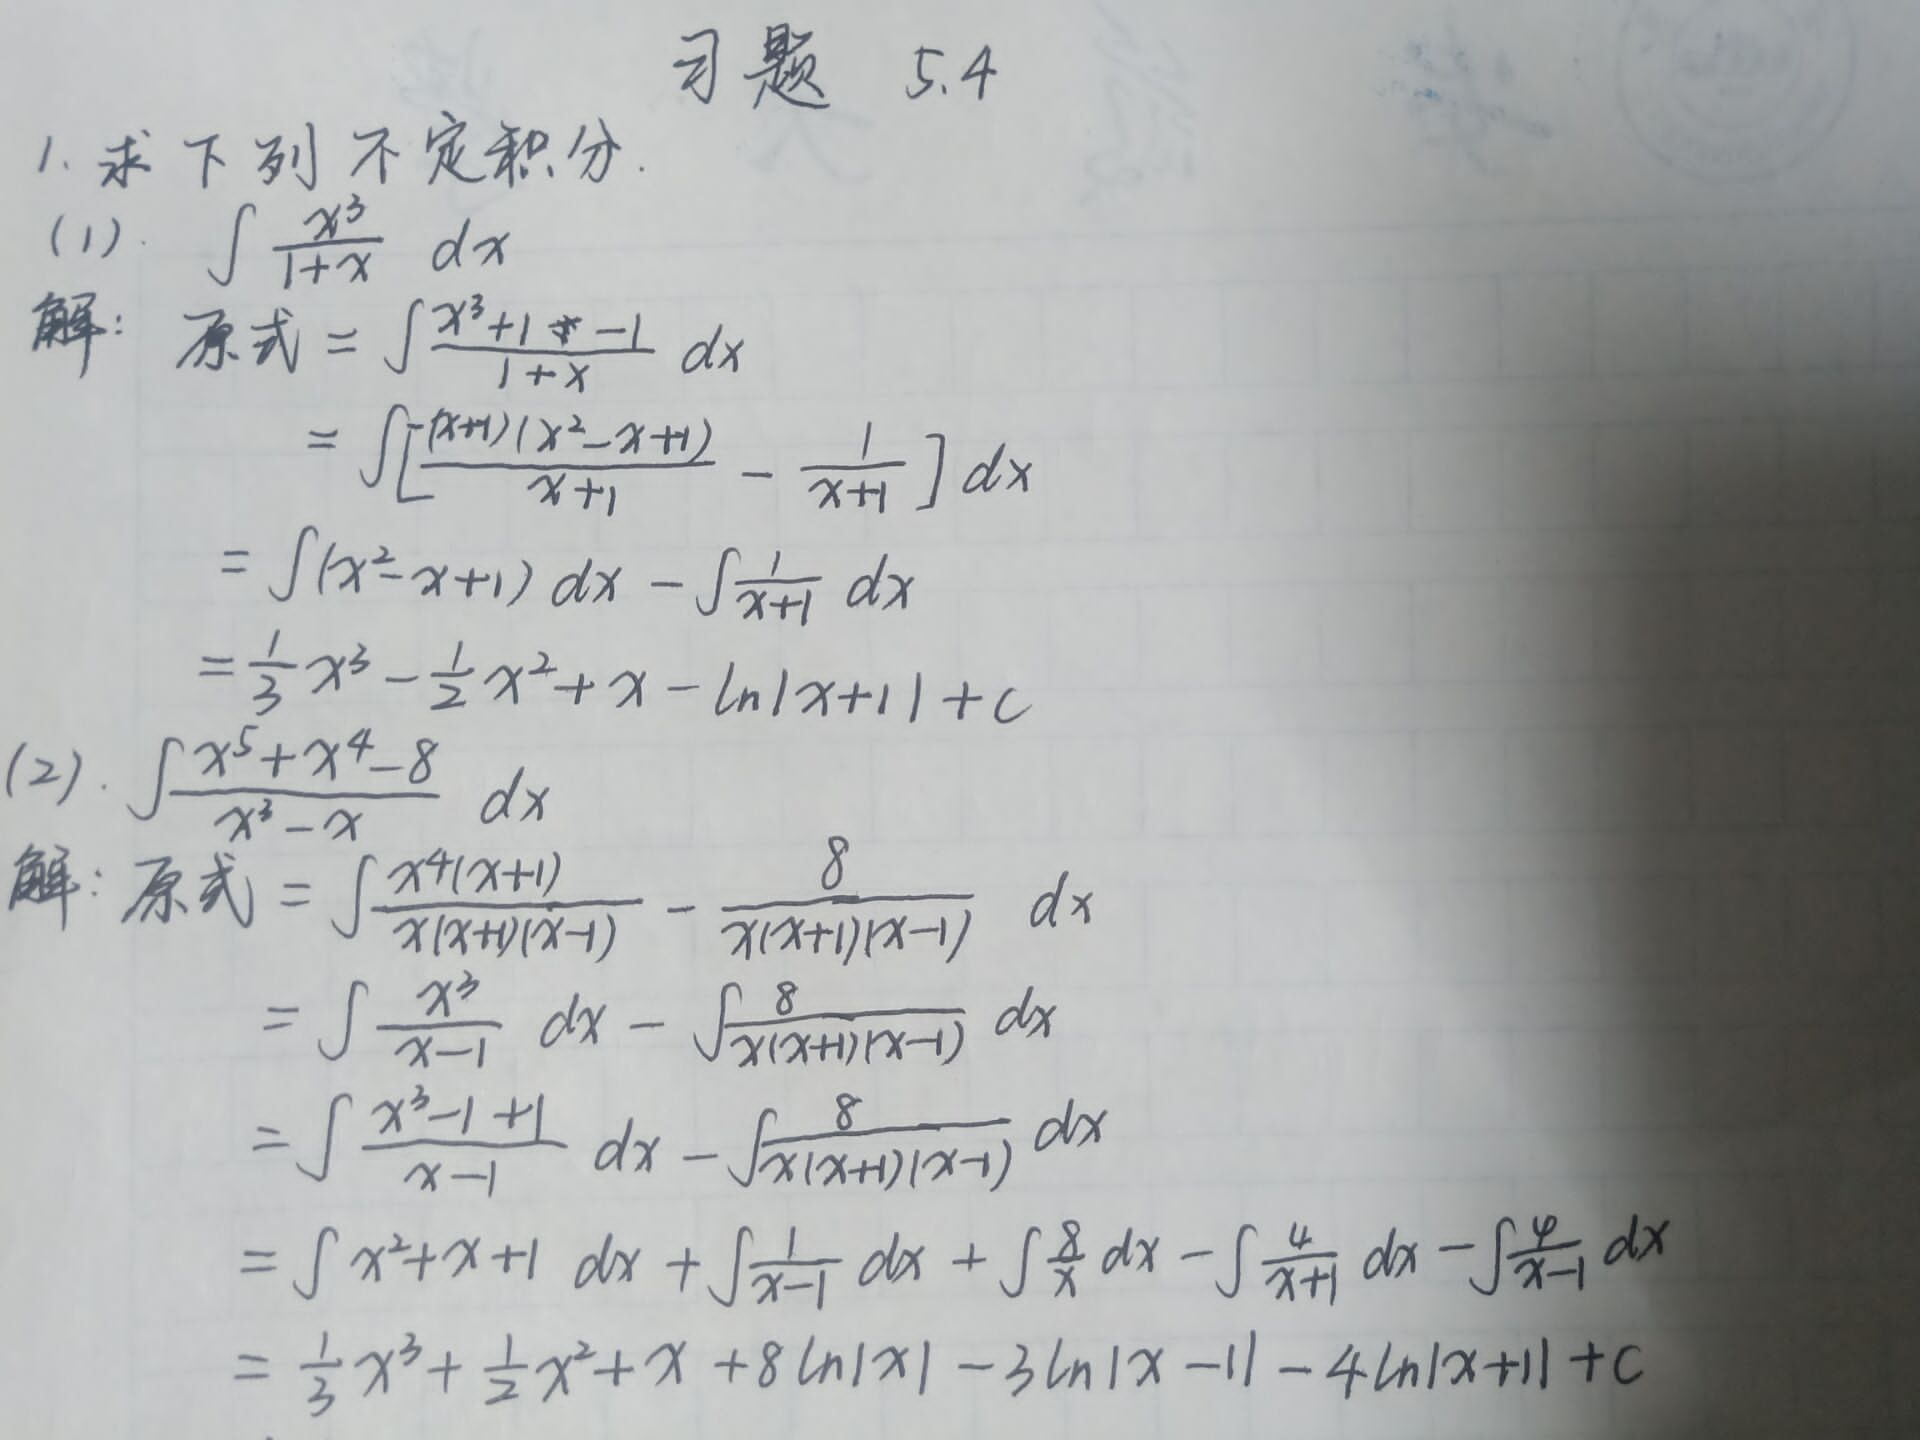 习题 5.4
1. 求下列不定积分.
(1). ∫ x³/(1+x) dx
解: 原式 = ∫ (x³+1-1)/(1+x) dx
= ∫[(x+1)(x²-x+1)/(x+1) - 1/(x+1)] dx
= ∫(x²-x+1) dx - ∫ 1/(x+1) dx
= 1/3 x³ - 1/2 x² + x - ln|x+1| + c
(2). ∫ (x⁵+x⁴-8)/(x³-x) dx
解: 原式 = ∫ x⁴(x+1)/(x(x+1)(x-1)) - 8/(x(x+1)(x-1)) dx
= ∫ x³/(x-1) dx - ∫ 8/(x(x+1)(x-1)) dx
= ∫ (x³-1+1)/(x-1) dx - ∫ 8/(x(x+1)(x-1)) dx
= ∫ x²+x+1 dx + ∫ 1/(x-1) dx + ∫ 8/x dx - ∫ 4/(x+1) dx - ∫ 4/(x-1) dx
= 1/3 x³ + 1/2 x² + x + 8 ln|x| - 3 ln|x-1| - 4 ln|x+1| + c